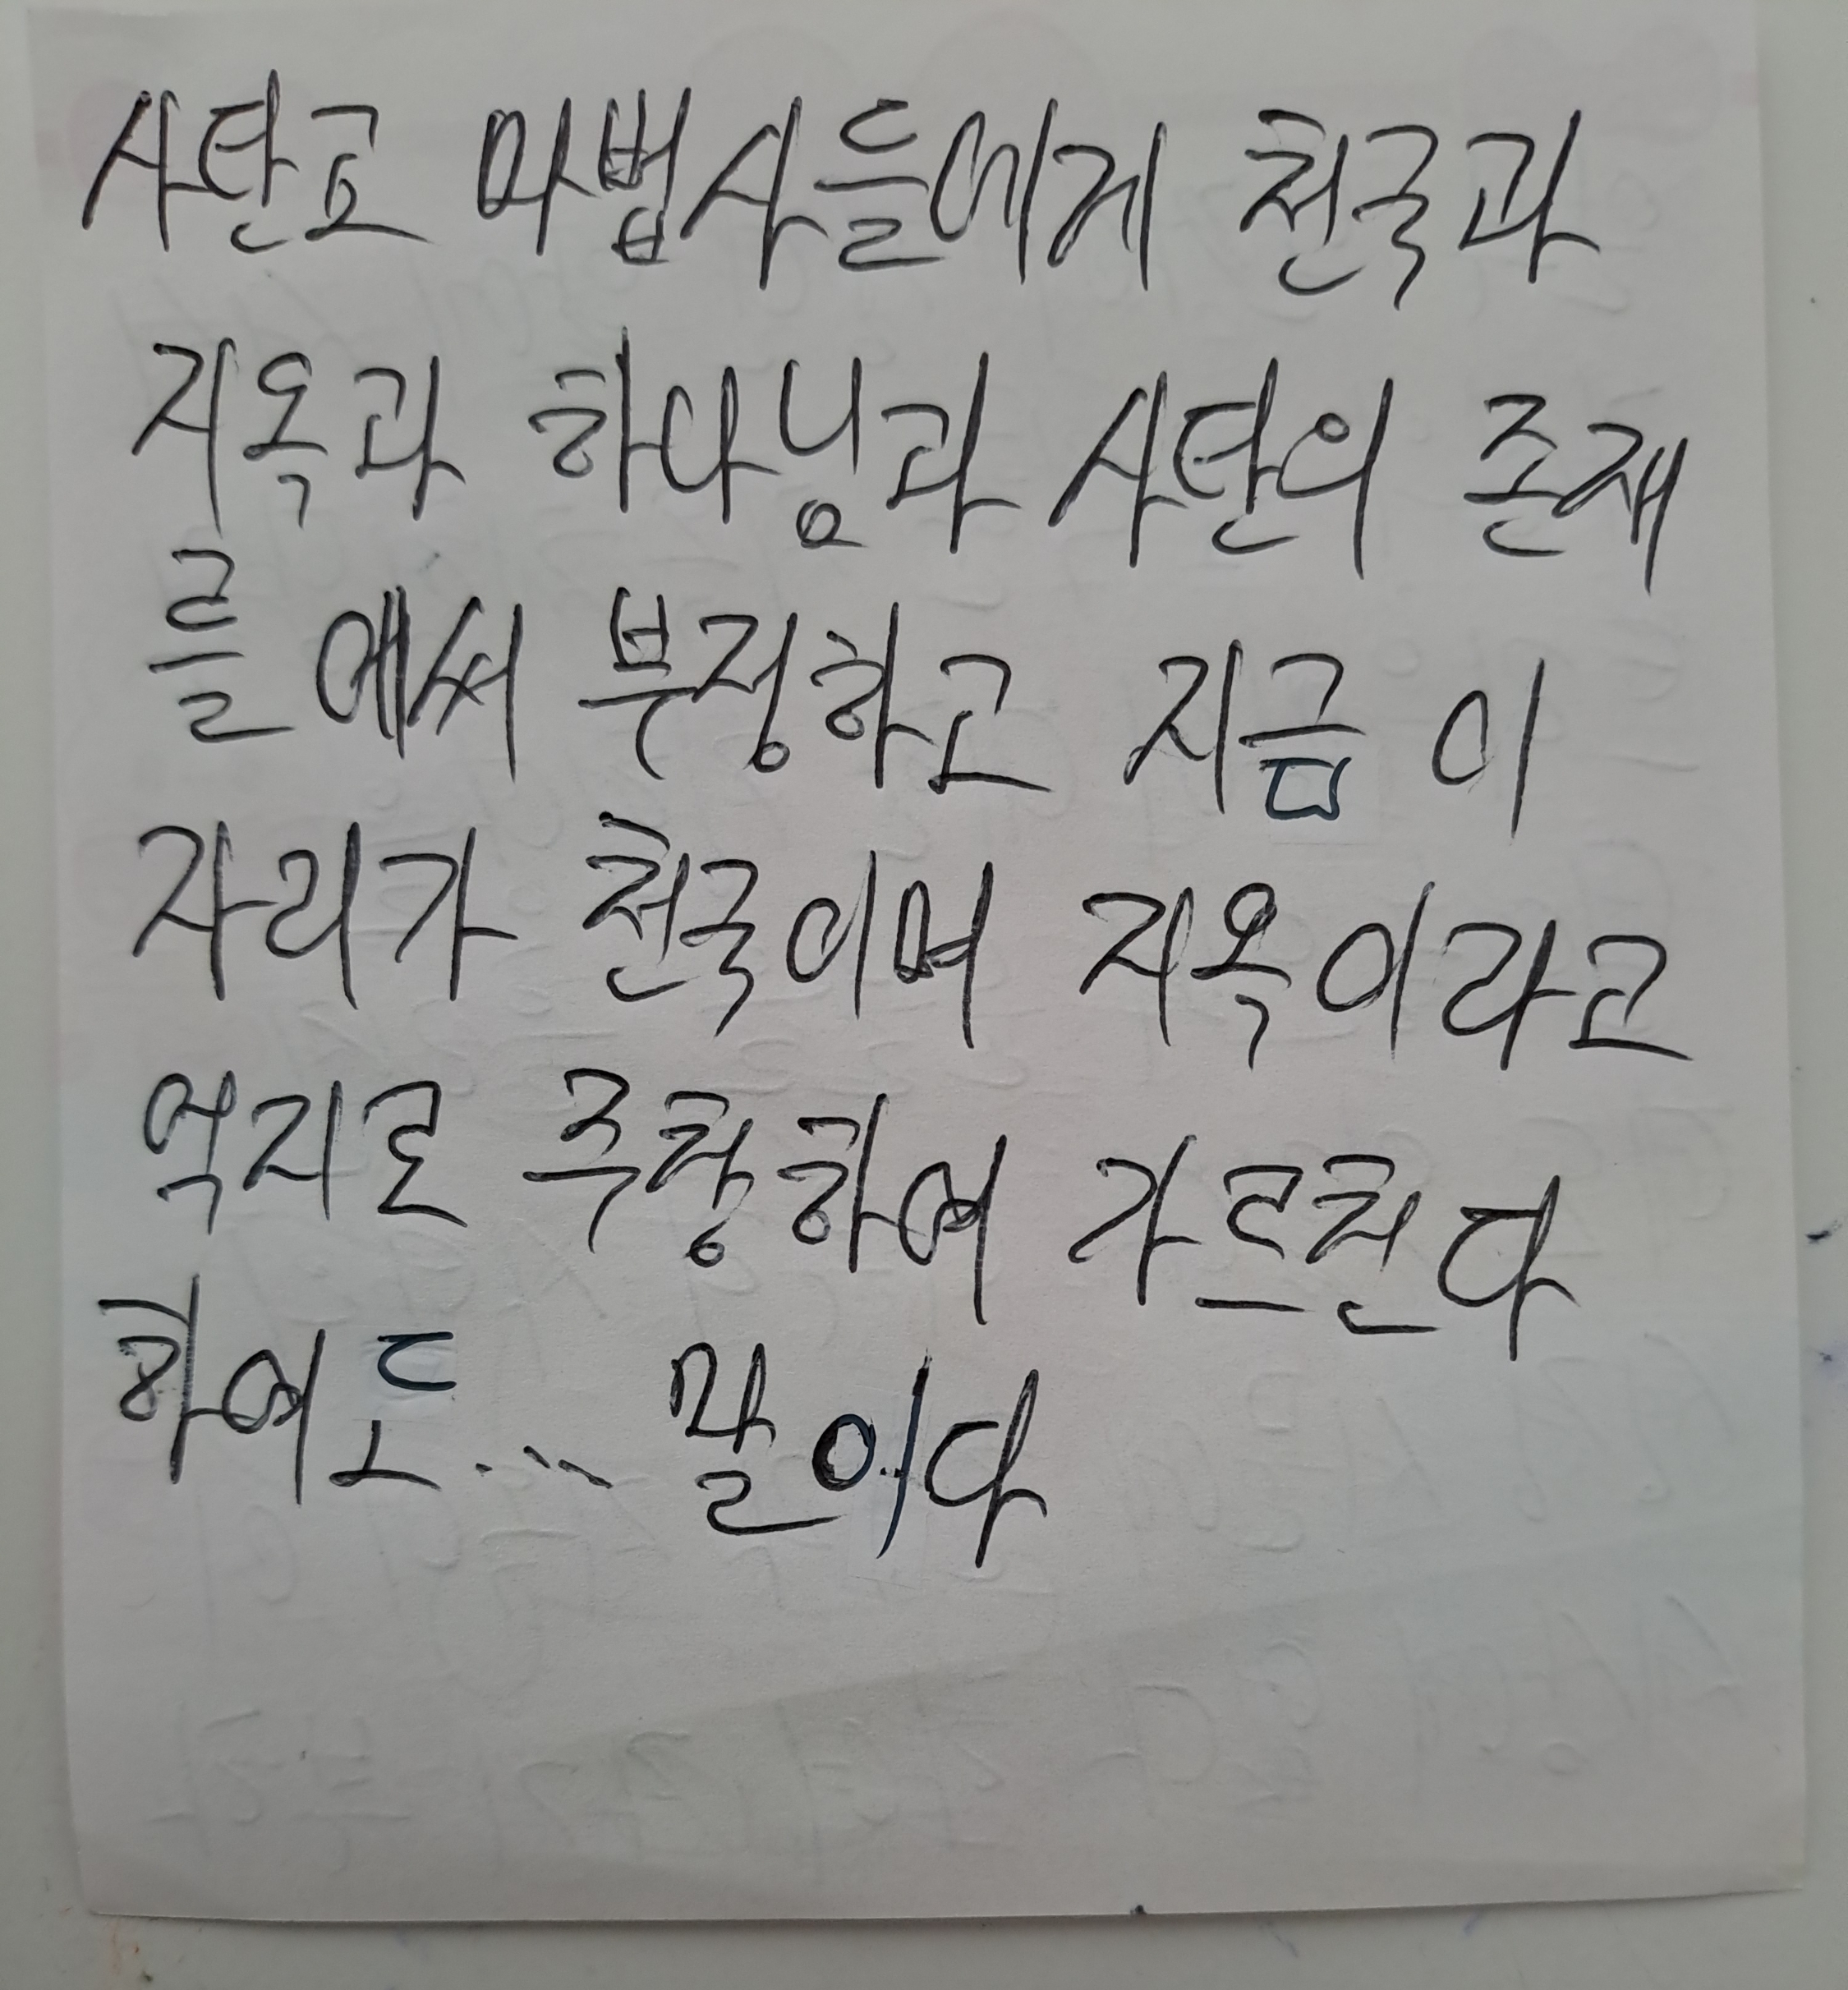 사탄교 마법사들에게 천국과
지옥과 하나님과 사탄의 존재
를 애써 부정하고 지금 이
자리가 천국이며 지옥이라고
억지로 주장하여 가르친다
하여도... 말이다